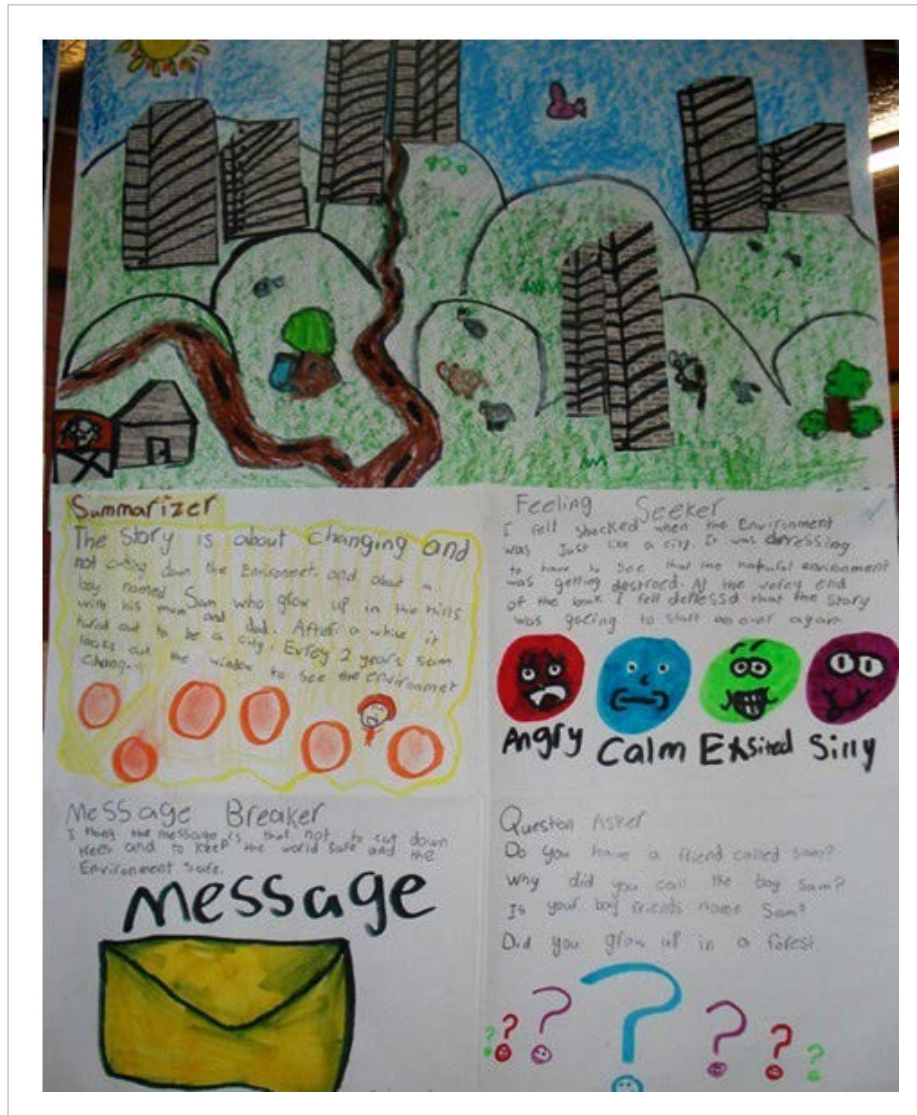 Summarizer
The Story is about changing and
not cuting down the Enviromet. and about a
boy named Sam, who glow up in the hills
with his mum and dad. After a while it
tured out to be a city. Evrey 2 years Sam
looks out the window to see the enviromet
Changing
Feeling Seeker
I fell shocked when the Environment
was Just Like a city. It was depressing
to have to see that the natural environment
was getting destroed. At the verey end
of the book I fell depressd that the story
was goeing to start as over again
Angry Calm Exsited Silly
Message Breaker
I thing the message is that not to cut down
trees and to keep the world safe and the
Environment safe.
message
Question Asker
Do you have a friend called Sam?
Why did you call the boy Sam?
Is your boy friends name Sam?
Did you grow up in a forest
? ? ? ? ? ? ?